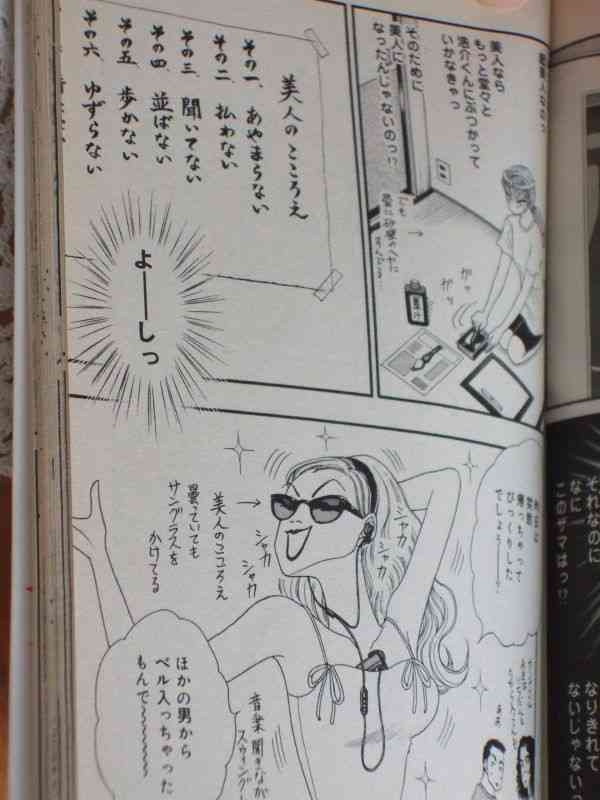 美人なら
もっと堂々と
浩介くんにぶつかって
いかなきゃっ
そのために
美人に
なったんじゃないのっ!?
ガッ
ガッ
墨汁
美人のこころえ
その一、あやまらない
その二、払わない
その三、聞いてない
その四、並ばない
その五、歩かない
その六、ゆずらない
よーしっ
昨日は
突然
帰っちゃって
びっくりした
でしょう
シャカ
シャカ
シャカ
シャカ
美人のこころえ
曇っていても
サングラスを
かけてる
ほかの男から
ベル入っちゃった
もんで〜〜〜〜〜
音楽聞きながら
それなのに
なに
このザマはっ!?
なりきれて
ないじゃないっ